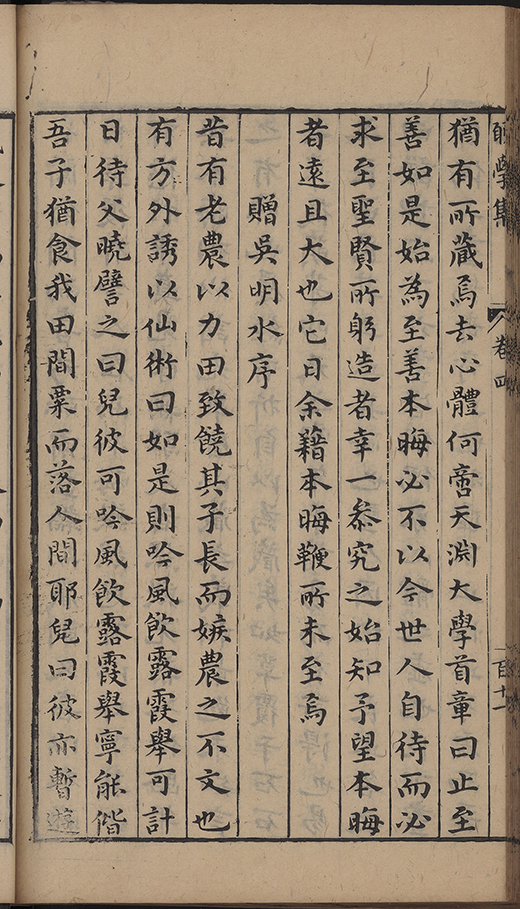 學集 卷四 一百十二
猶有所藏焉去心體何啻天淵大學首章曰止至
善如是始為至善本晦必不以今世人自待而必
求至聖賢所躬造者幸一叅究之始知予望本晦
者遠且大也它日余藉本晦鞭所未至焉
贈吳明水序
昔有老農以力田致饒其子長而嫉農之不文也
有方外誘以仙術曰如是則吟風飲露霞舉可計
日待父曉譬之曰兒彼可吟風飲露霞舉寧能偕
吾子猶食我田間粟而落人間耶兒曰彼亦暫遊